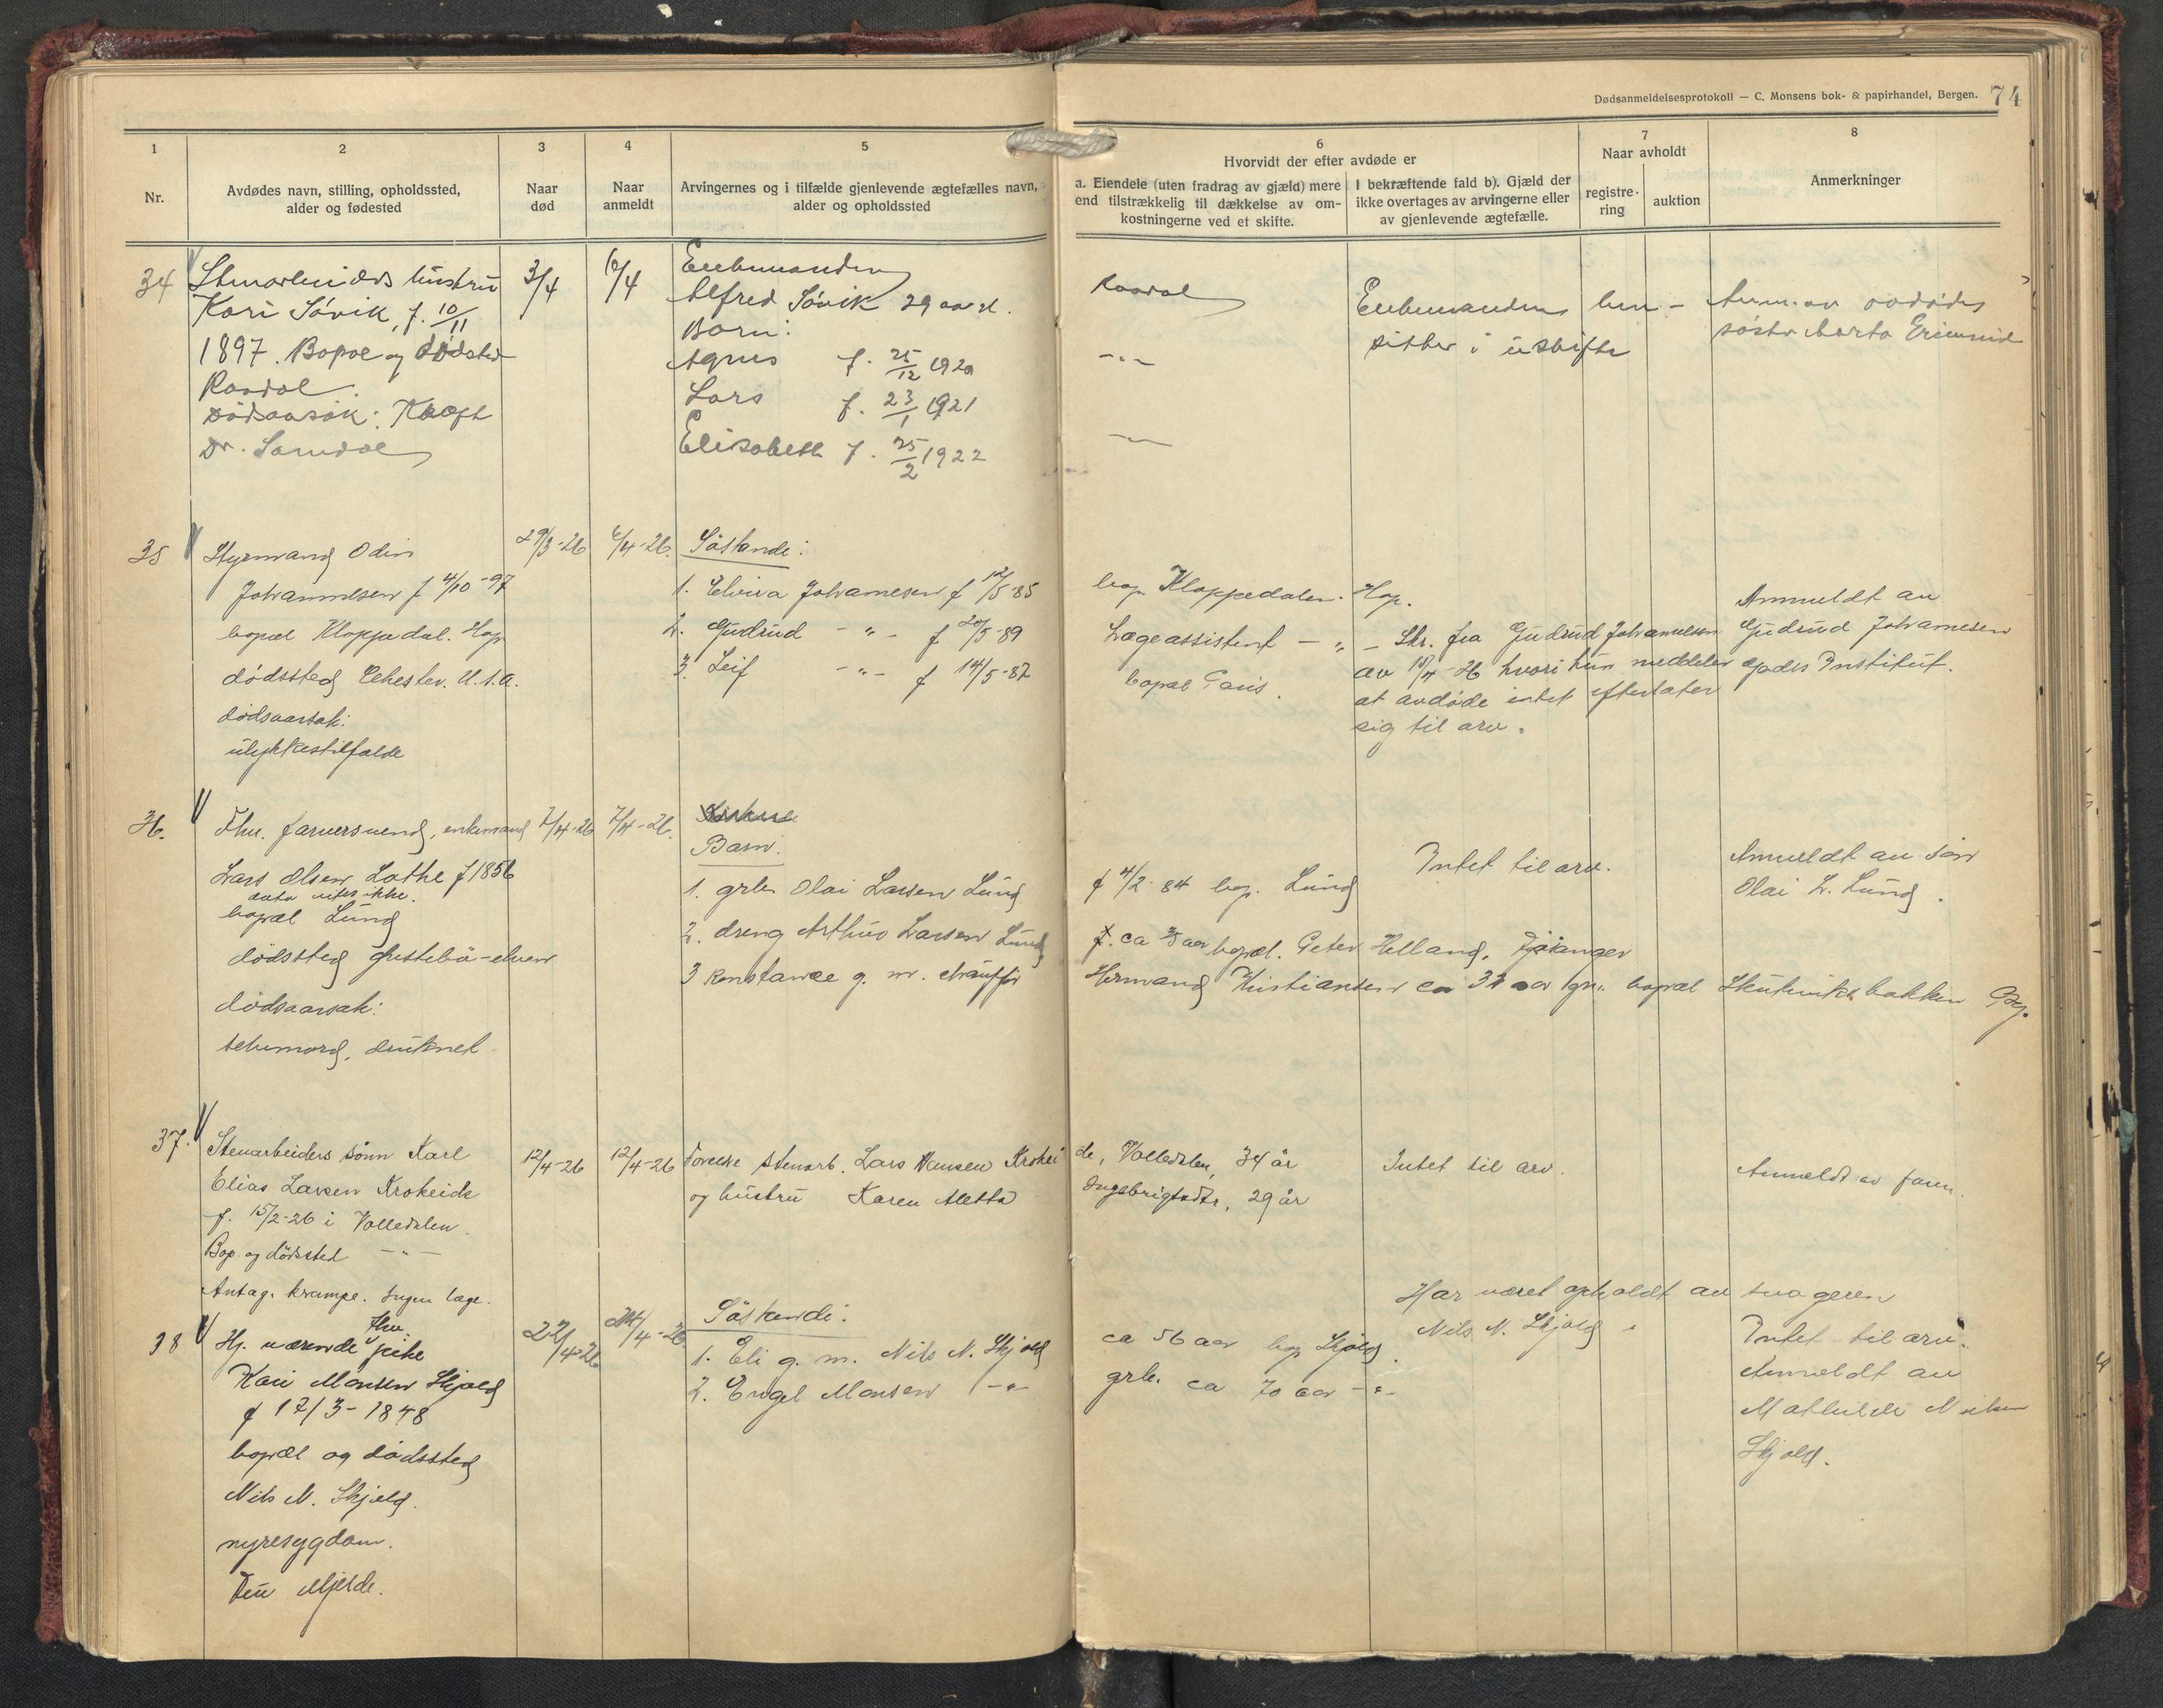 Dødsanmeldelsesprotokoll — C. Monsens bok- & papirhandel, Bergen. 74
1
2
3
4
5
6
7
8
Nr.
Avdødes navn, stilling, opholdssted,
alder og fødested
Naar
død
Naar
anmeldt
Arvingernes og i tilfælde gjenlevende ægtefælles navn,
alder og opholdssted
Hvorvidt der efter avdøde er
a. Eiendele (uten fradrag av gjæld) mere
end tilstrækkelig til dækkelse av om-
kostningerne ved et skifte.
I bekræftende fald b). Gjæld der
ikke overtages av arvingerne eller
av gjenlevende ægtefælle.
Naar avholdt
registre-
ring
auktion
Anmerkninger
34
Stenarbeiders hustru
Kari Søvik, f. 10/11
1897. Bopæl og dødsted
Raadal.
Dødsaarsak: Kræft
Dr.
3/4
6/4
Enkemanden
Alfred Søvik 29 aar
Barn:
Agnes f. 25/12 1920
Lars f. 23/1 1921
Elisabeth f. 25/2 1922
Raadal
- " -
- " -
Enkemanden hen-
sitter i uskifte
Anm. av avdødes
søster Marta
35
Styrmand Odin
Johannesen f 4/10-97
bopæl Kloppedal. Hop
dødssted Chester. U.S.A.
dødsaarsak:
ulykkestilfælde
29/3-26
6/4-26.
Søskende:
1. Elvira Johannesen f 12/5-85
2. Gudrud - " - f 20/5-89
3. Leif - " - f 14/5-87
bop. Kloppedalen. Hop.
Lægeassistent - " -
bopæl Paris.
Skr. fra Gudrud Johannesen
av 18/4-26 hvori hun meddeler
at avdøde intet efterlater
sig til arv.
Anmeldt av
Gudrud Johannesen
Institut.
36.
Fhv. farversvend, enkemand
Lars Olsen Lothe f 1856
dato vites ikke.
bopæl Lund
dødssted
dødsaarsak:
selvmord, druknet
7/4-26
7/4-26.
Barn.
1. grb. Olai Larsen Lund
2. dreng Arthur Larsen Lund
3 Konstance g. m. chauffør
f 4/2-84 bop. Lund
bopæl. Peter Helland, Fjøsanger
Hermand Kristiansen ca 33 aar bopæl Skuteviksbakken Bg.
Intet til arv.
Anmeldt av søn
Olai L. Lund.
37.
Stenarbeiders sønn Karl
Elias Larsen Krokeide
f. 15/2-26 i Volledalen.
Bop. og dødssted - " -
Antag. krampe. Ingen læge.
12/4-26
12/4-26
Foreldre stenarb. Lars Hansen Krokei
de, Volledalen, 34 år
og hustru Karen Metta
Ingebrigtsdtr., 29 år
Intet til arv.
Anmeldt av faren.
38
Hj. værende fhv pike
Kari Monsen Skjold
f 17/3-1848
bopæl og dødssted
Nils N. Skjold.
nyresygdom.
Mjelde.
22/4-26
24/4-26
Søskende:
1. Eli g. m. Nils N. Skjold
2. Engel Monsen - " -
ca 56 aar bop Skjold.
grb. ca 70 aar - " -
Har været opholdt av svogeren
Nils N. Skjold.
Intet til arv.
Anmeldt av
Mathilde Nilsen
Skjold.